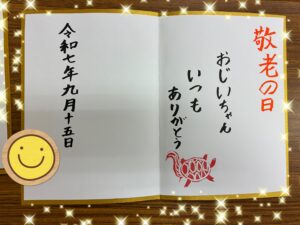 敬老の日
おじいちゃん
いつも
ありがとう
令和七年九月十五日